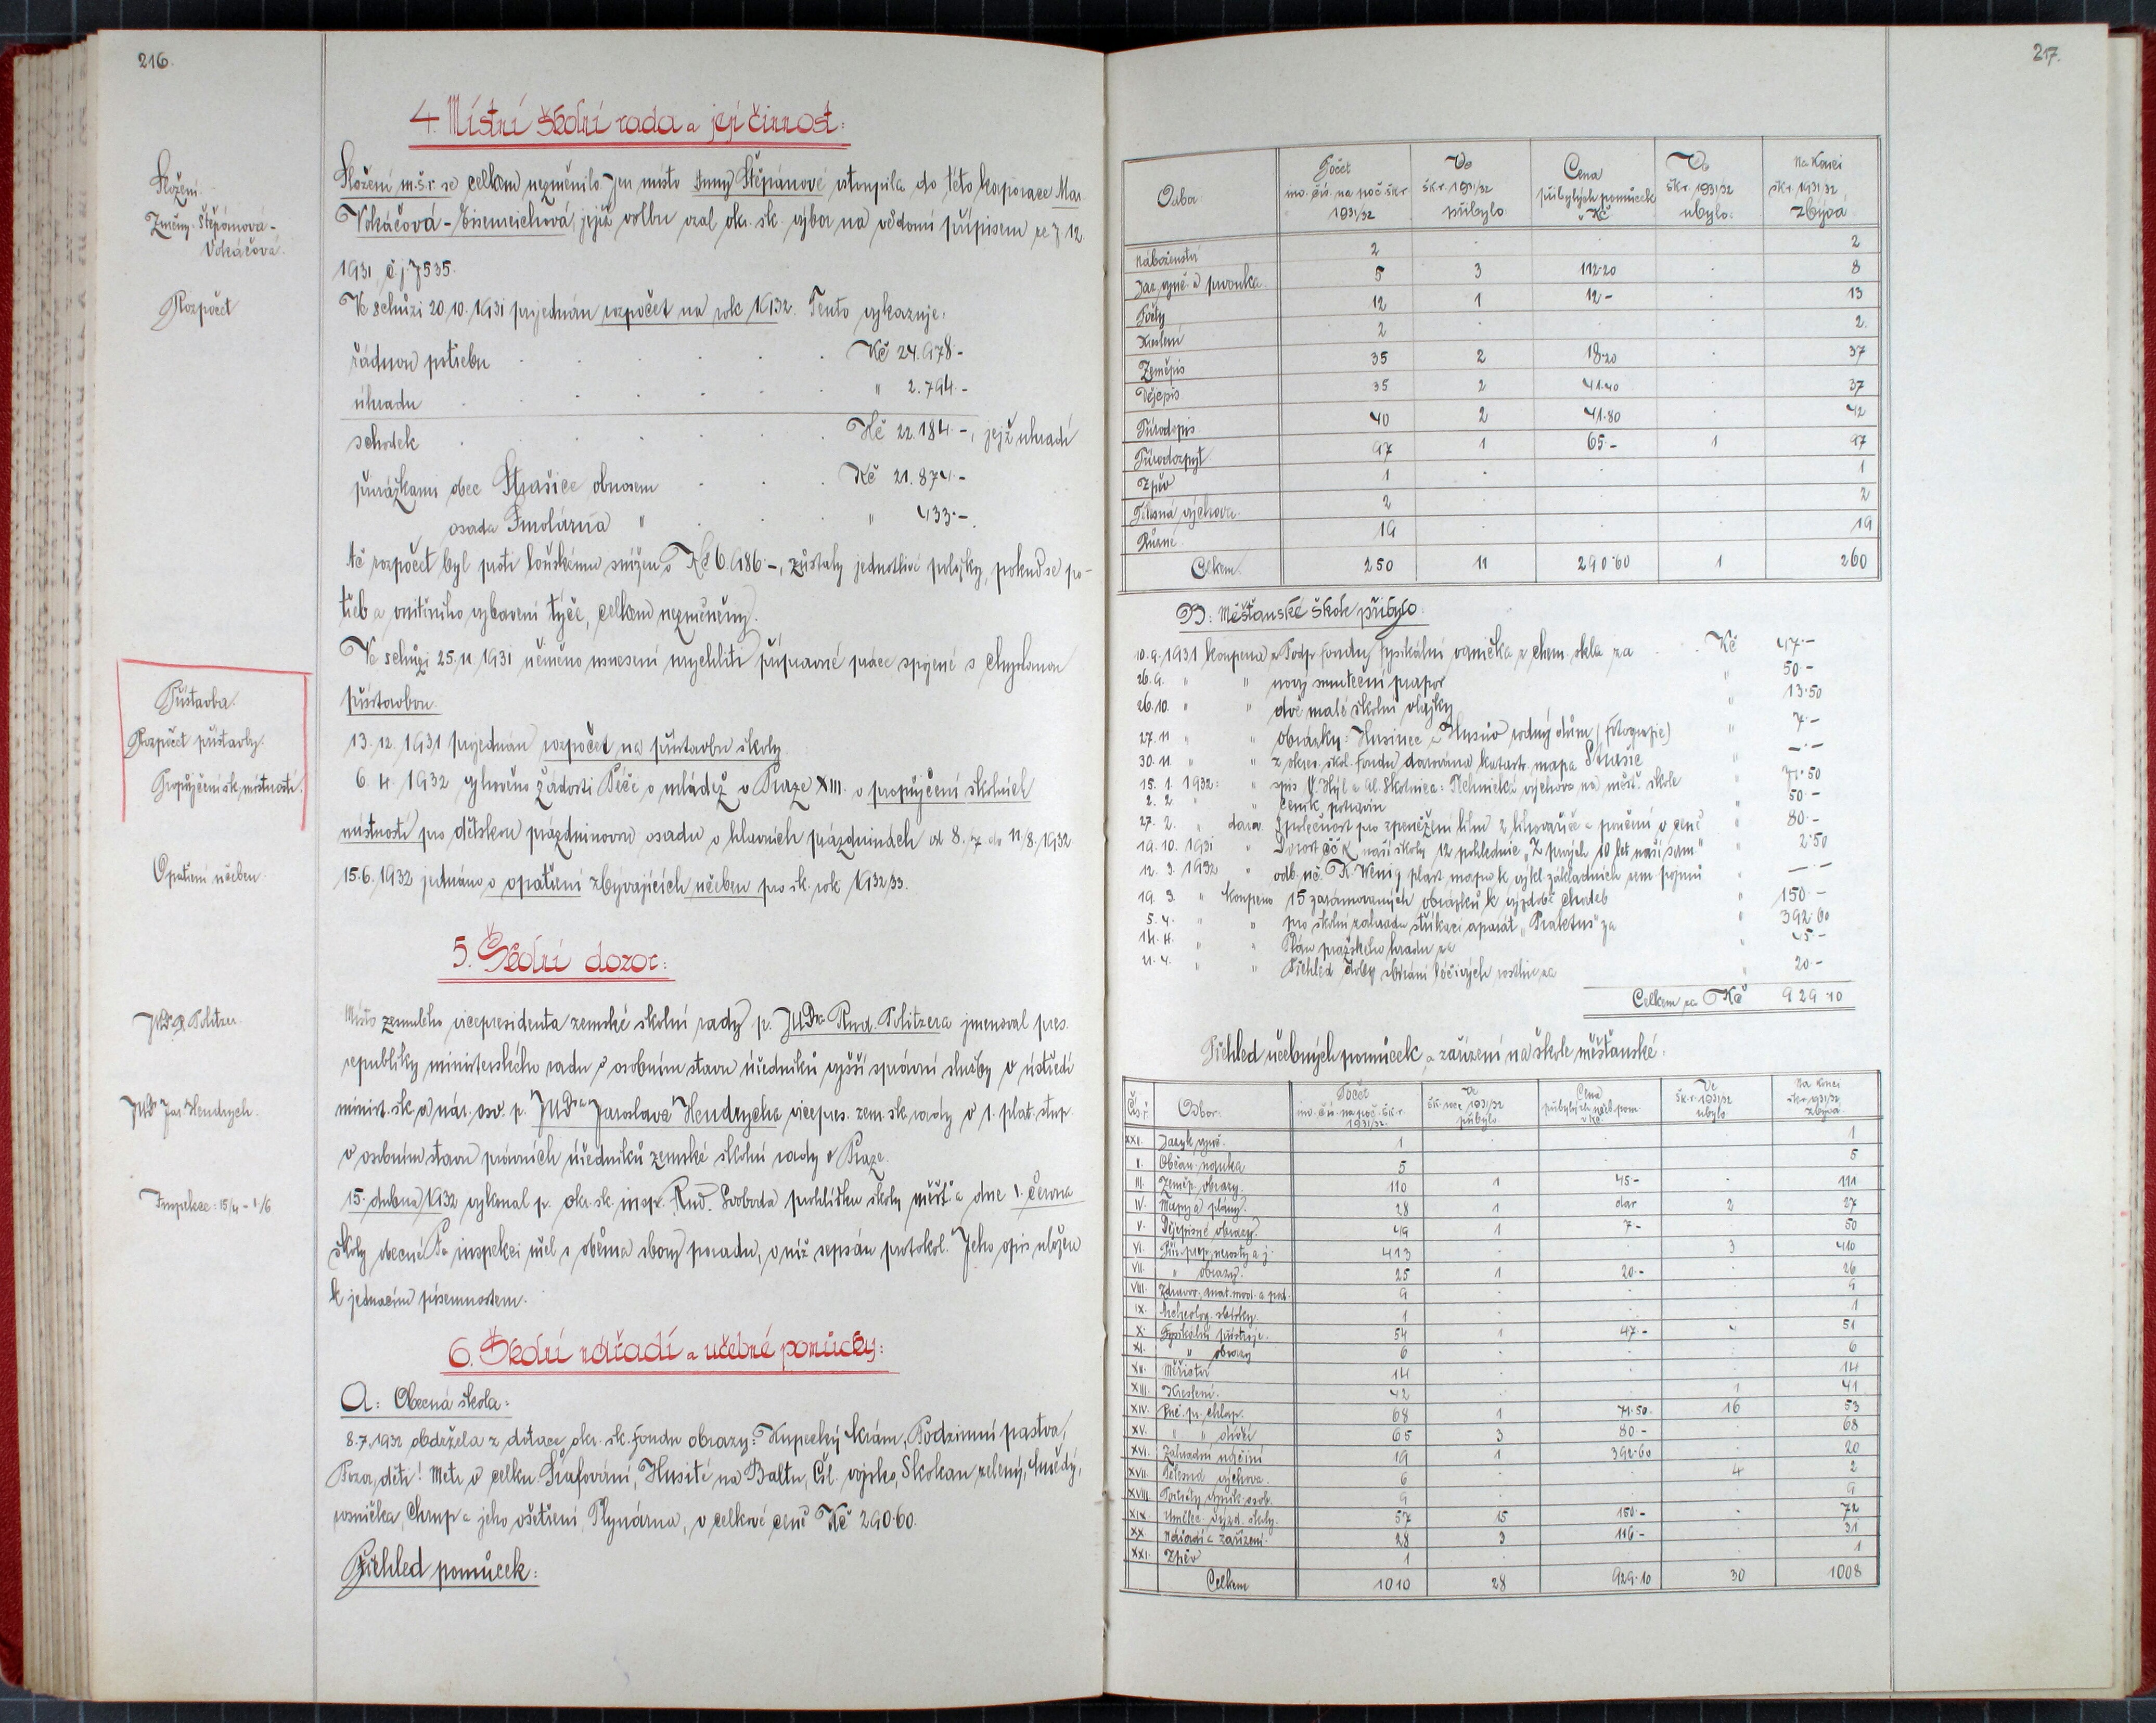 216.
4. Místní školní rada a její činnost:
Složení
Změny: Štěpánová -
Vokáčová.
Složení m.š.r. se celkem nezměnilo. Jen místo Anny Štěpánové vstoupila do této korporace Mar.
Vokáčová - Eisenreichová, jejíž volbu vzal okr. šk. výbor na vědomí přípisem ze 7. 12.
1931, č.j. 7535.
Rozpočet
Ve schůzi 20. 10. 1931 projednán rozpočet na rok 1932. Tento vykazuje:
řádnou potřebu . . . . . Kč 24.978.-
úhradu . . . . . " 2.794.-
schodek . . . . . Kč 22.184.-, jejž uhradí
přirážkami obec Strašice obnosem . . . Kč 21.874.-
osada Smolárna " . . . " 433.-
Ač rozpočet byl proti loňskému snížen o Kč 6.186.-, zůstaly jednotlivé položky, pokud se po-
třeb a vnitřního vybavení týče, celkem nezměněny.
Ve schůzi 25. 11. 1931 učiněno usnesení urychliti přípravné práce spojené s chystanou
přístavbou.
Přístavba.
Rozpočet přístavby.
Propůjčení šk. místností.
13. 12. 1931 projednán rozpočet na přístavbu školy.
6. 4. 1932 vyhověno žádosti Péče o mládež v Praze XIII. o propůjčení školních
místností pro dětskou prázdninovou osadu o hlavních prázdninách od 8./7. do 11/8. 1932.
Opatření učeben
15. 6. 1932 jednáno o opatření zbývajících učeben pro šk. rok 1932/33.
5. Školní dozor:
JUDr. R. Politzer
Místo zesnulého vicepresidenta zemské školní rady p. JUDra Rud. Politzera jmenoval pres.
republiky ministerského radu v osobním stavu úředníků vyšší správní služby v ústředí
JUDr. Jar. Hendrych.
minist. šk. a nár. osv. p. JUDra Jaroslava Hendrycha vicepres. zem. šk. rady v 1. plat. stup.
v osobním stavu právních úředníků zemské školní rady v Praze.
Inspekce: 15/4 - 1/6
15. dubna 1932 vykonal p. okr. šk. insp. Rud. Svoboda prohlídku školy měšť. a dne 1. června
školy obecné. Po inspekci měl s oběma sbory poradu, o níž sepsán protokol. Jeho opis uložen
k jednacím písemnostem.
6. Školní nářadí a učebné pomůcky:
A: Obecná škola:
8. 7. 1932 obdržela z dotace okr. šk. fondu obrazy: Kupecký krám, Podzimní pastva,
Pozor, děti! Metr v celku. Šrafování, Husité na Baltu, Čsl. vojsko, Skokan zelený, hnědý,
rosnička, Chrup a jeho ošetření, Plynárna, v celkové ceně Kč 290.60.
Přehled pomůcek:
217.
Odbor: Počet inv. čís. na poč. šk.r. 1931/32 Ve šk.r. 1931/32 přibylo Cena přibylých pomůcek v Kč Ve šk.r. 1931/32 ubylo: Na konci šk.r. 1931/32 zbývá
Náboženství 2 . . . 2
Jaz. vyuč. a prvouka 5 3 112.20 . 8
Počty 12 1 12- . 13
Kreslení 2 . . . 2.
Zeměpis 35 2 18.20 . 37
Dějepis 35 2 41.40 37
Přírodopis 40 2 41.80 . 42
Přírodozpyt 97 1 65.- 1 97
Zpěv 1 . . 1
Tělesná výchova 2 . . . 2
Různé 19 . . . 19
Celkem. 250 11 290.60 1 260
B: Měšťanské škole přibylo:
10. 9. 1931 koupena z Podp. fondu fysikální vanička z chem. skla za . . Kč 47.-
26. 9. " " nový smuteční prapor " 50.-
26. 10. " " dvě malé školní vlajky 13.50
27. 11. " " obrázky: Husinec a Husův rodný dům (fotografie) " 7.-
30. 11. " " z okres. škol. fondu darována katastr. mapa Strašic -.-
15. 1. 1932: " spis V. Hýl a Al. Skolnica: Technická výchova na měšť. škole 71.50
2. 2. " ceník potravin 50.-
27. 2. " darov. Společnost pro zpeněžení lihu 2 lihovařiče a poučení v ceně " 80.-
19. 10. 1931 " Dorost ČČK naší školy 12 pohlednic "Z prvých 10 let naší sam." " 2.50
12. 3. 1932 " odb. uč. K. Wenig plast. mapu k výkl. základních zem. pojmů " -.-
19. 3. " koupeno 15 zarámovaných obrázků k výzdobě chodeb " 150.-
5. 4. " " pro školní zahradu stříkací aparát "Praktus" za " 392.60
14. 4. " " Plán pražského hradu za " 45.-
21. 4. " " Přehled doby sbírání léčivých rostlin za " 20.-
Celkem za Kč 929.10
Přehled učebných pomůcek a zařízení na škole měšťanské:
Čís. ř. Odbor: Počet inv. čís. na poč. šk.r. 1931/32. Ve šk. roce 1931/32 přibylo Cena přibylých učeb. pom. v Kč. Ve šk.r. 1931/32 ubylo Na konci šk.r. 1931/32 zbývá
XXI. Jazyk vyuč. 1 . . . 1
II. Občan. nauka 5 . . . 5
III. Zeměp. obrazy. 110 1 45- . 111
IV. Mapy a plány. 28 1 dar 2 27
V. Dějepisné obrazy. 49 1 7- . 50
VI. Přír. prep., nerosty a j. 413 . . 3 410
VII. " obrazy. 25 1 20.- 26
VIII. Zdravov., anat. mod. a pod. 9 . . . 9
IX. Archeolog. sbírky. 1 . . . 1
X. Fysikální přístroje. 54 1 47- 4 51
XI. " obrazy 6 . . . 6
XII. Měřictví 14 . . . 14
XIII. Kreslení. 42 . . 1 41
XIV. Ruč. pr. chlap. 68 1 71.50. 16 53
XV. " " dívčí 65 3 80- . 68
XVI. Zahradní náčiní 19 1 392.60 . 20
XVII. Tělesná výchova. 6 . . 4 2
XVIII. Portréty vynik. osob. 9 . . 9
XIX. Umělec. výzd. školy. 57 15 150.- - 72
XX. Nářadí a zařízení. 28 3 116- 31
XXI. Zpěv 1 . . 1
Celkem 1010 28 929.10 30 1008